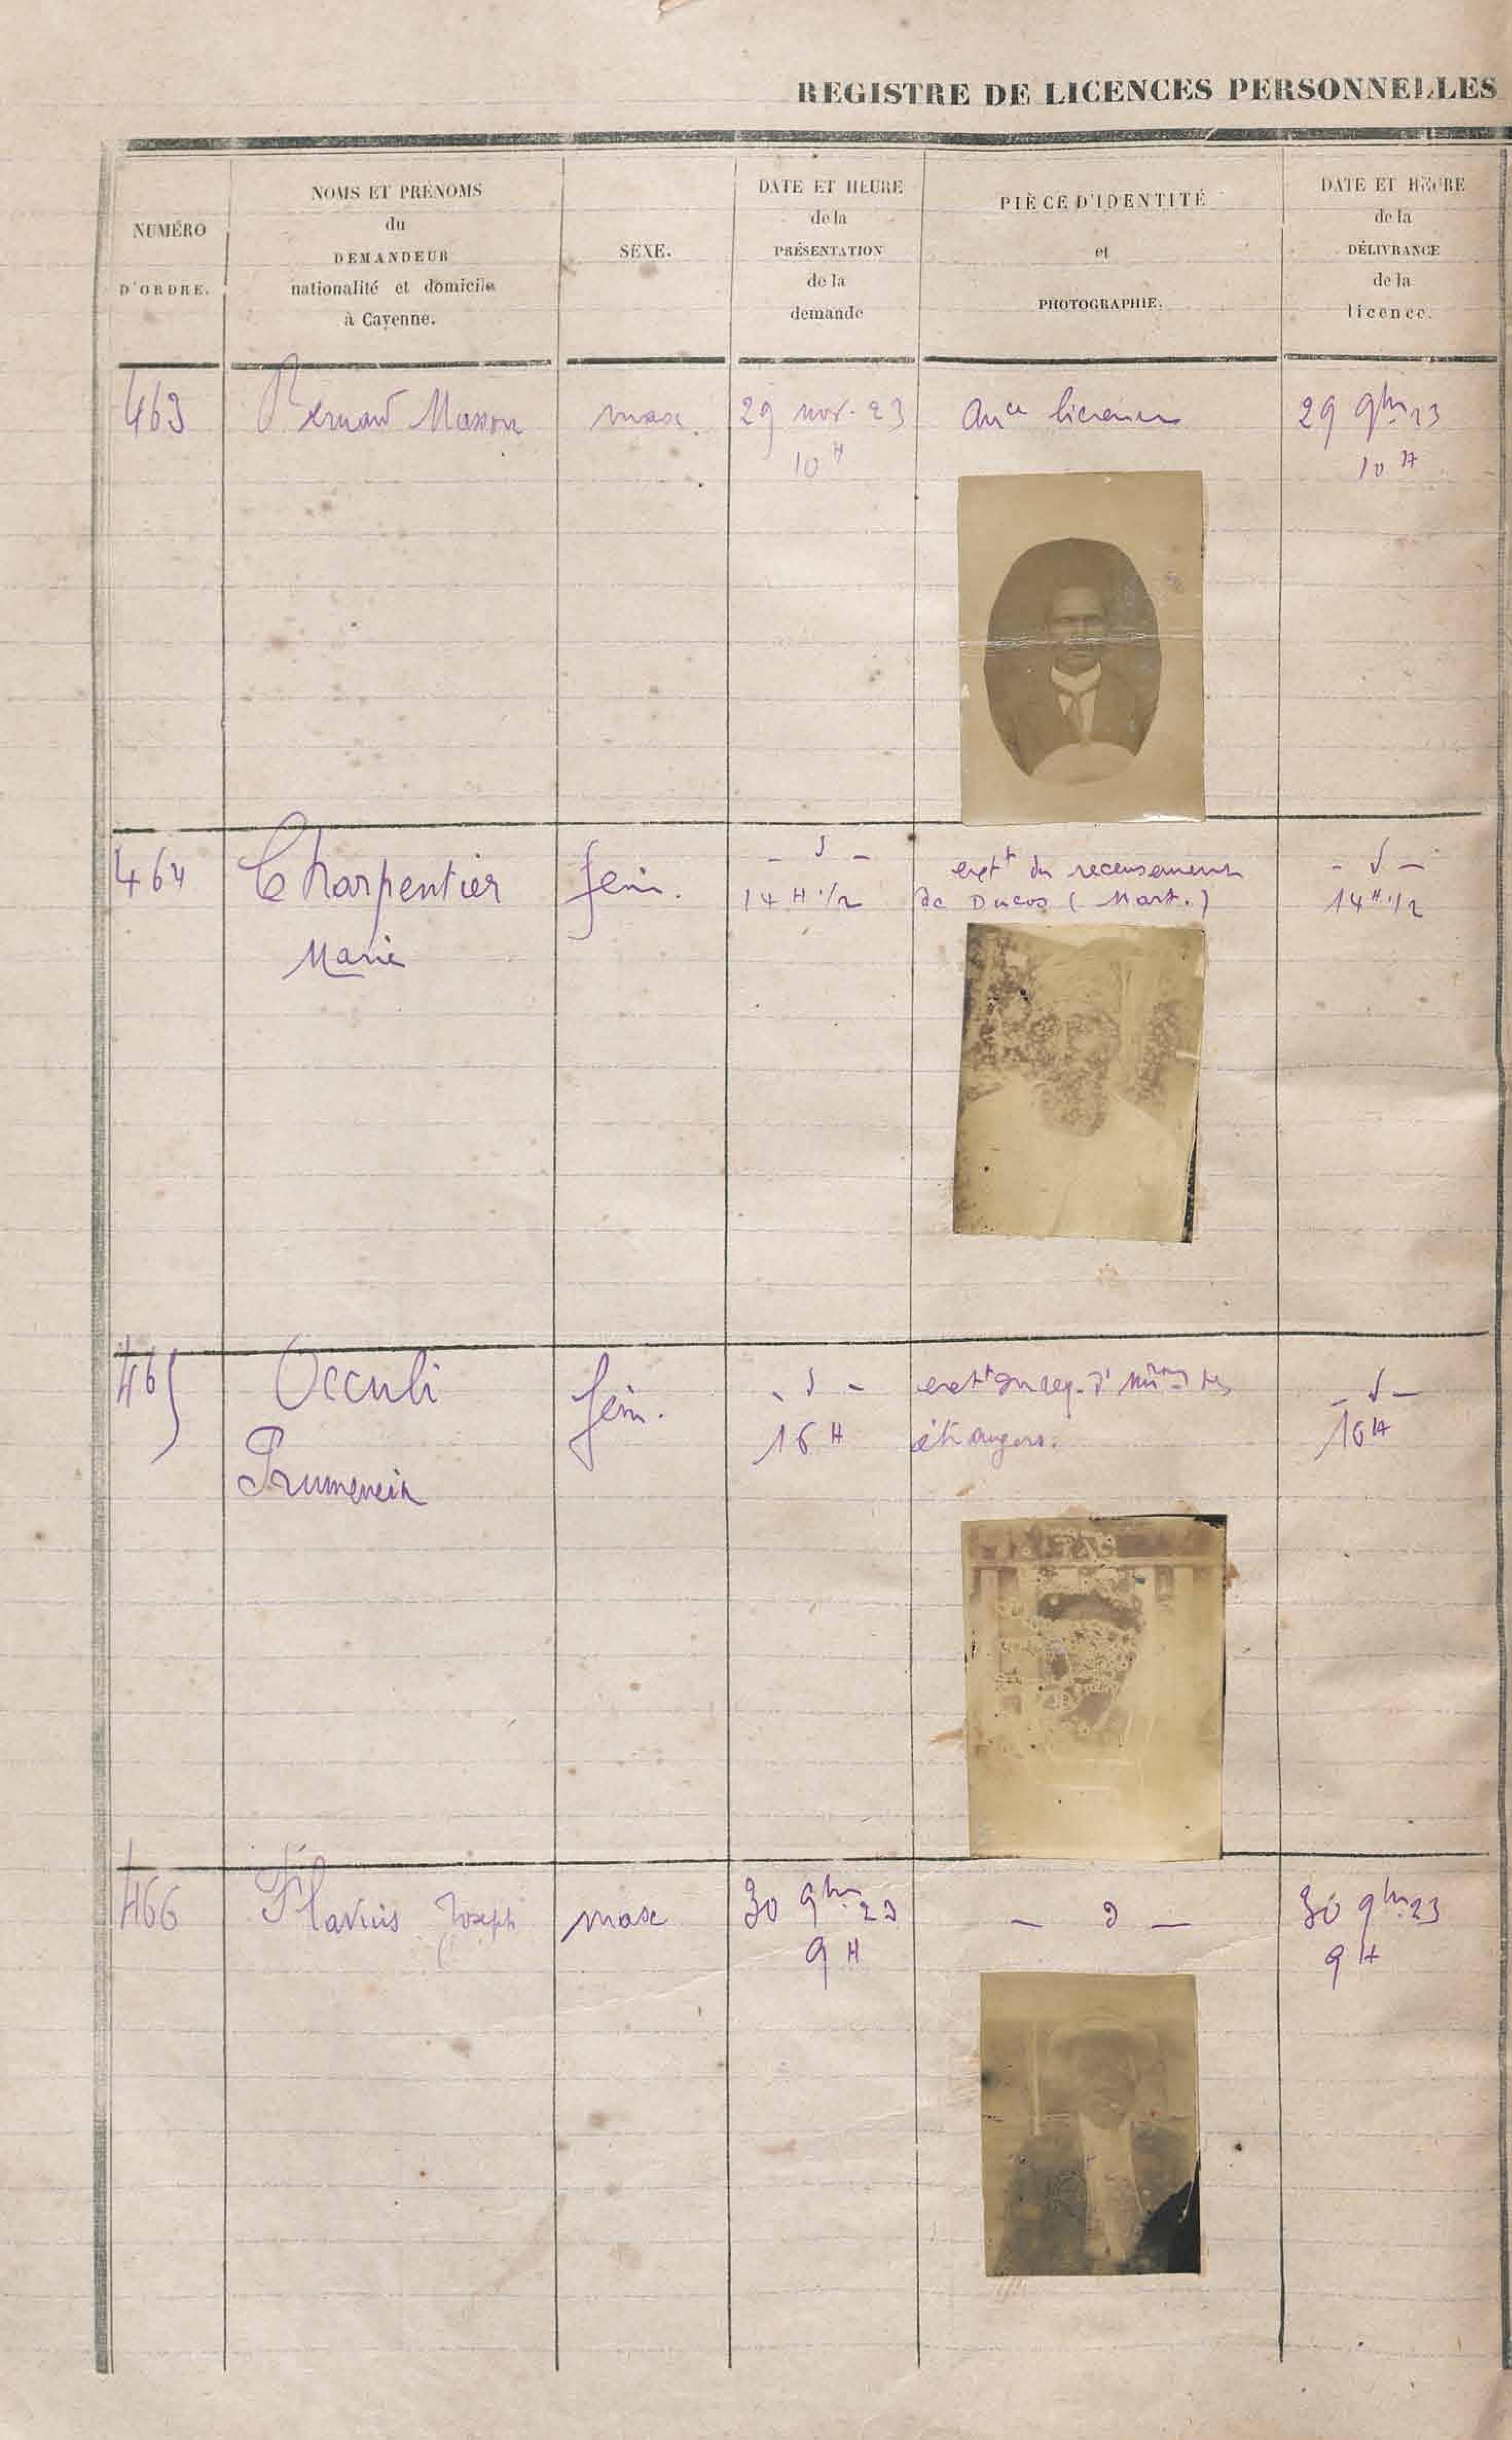 REGISTRE DE LICENCES PERSONNELLES
NUMÉRO
D'ORDRE.
NOMS ET PRÉNOMS
du
DEMANDEUR
nationalité et domicile
à Cayenne.
SEXE.
DATE ET HEURE
de la
PRÉSENTATION
de la
demande
PIÈCE D'IDENTITÉ
et
PHOTOGRAPHIE.
DATE ET HEURE
de la
DÉLIVRANCE
de la
licence.
463 Bernard Masson masc. 29 nov. 23 Ance licence 29 9bre 23
10 H 10 H
464 Charpentier fém. - d - extt du recensement - d -
14 H 1/2 de Ducos (Mart.) 14 H 1/2
Marie
465 Occuli fém. - d - extt du reg. d' des - d -
16 H étrangers. 16 H
466 Flavius Joseph masc 30 9bre 23 - d - 30 9bre 23
9 H 9 H